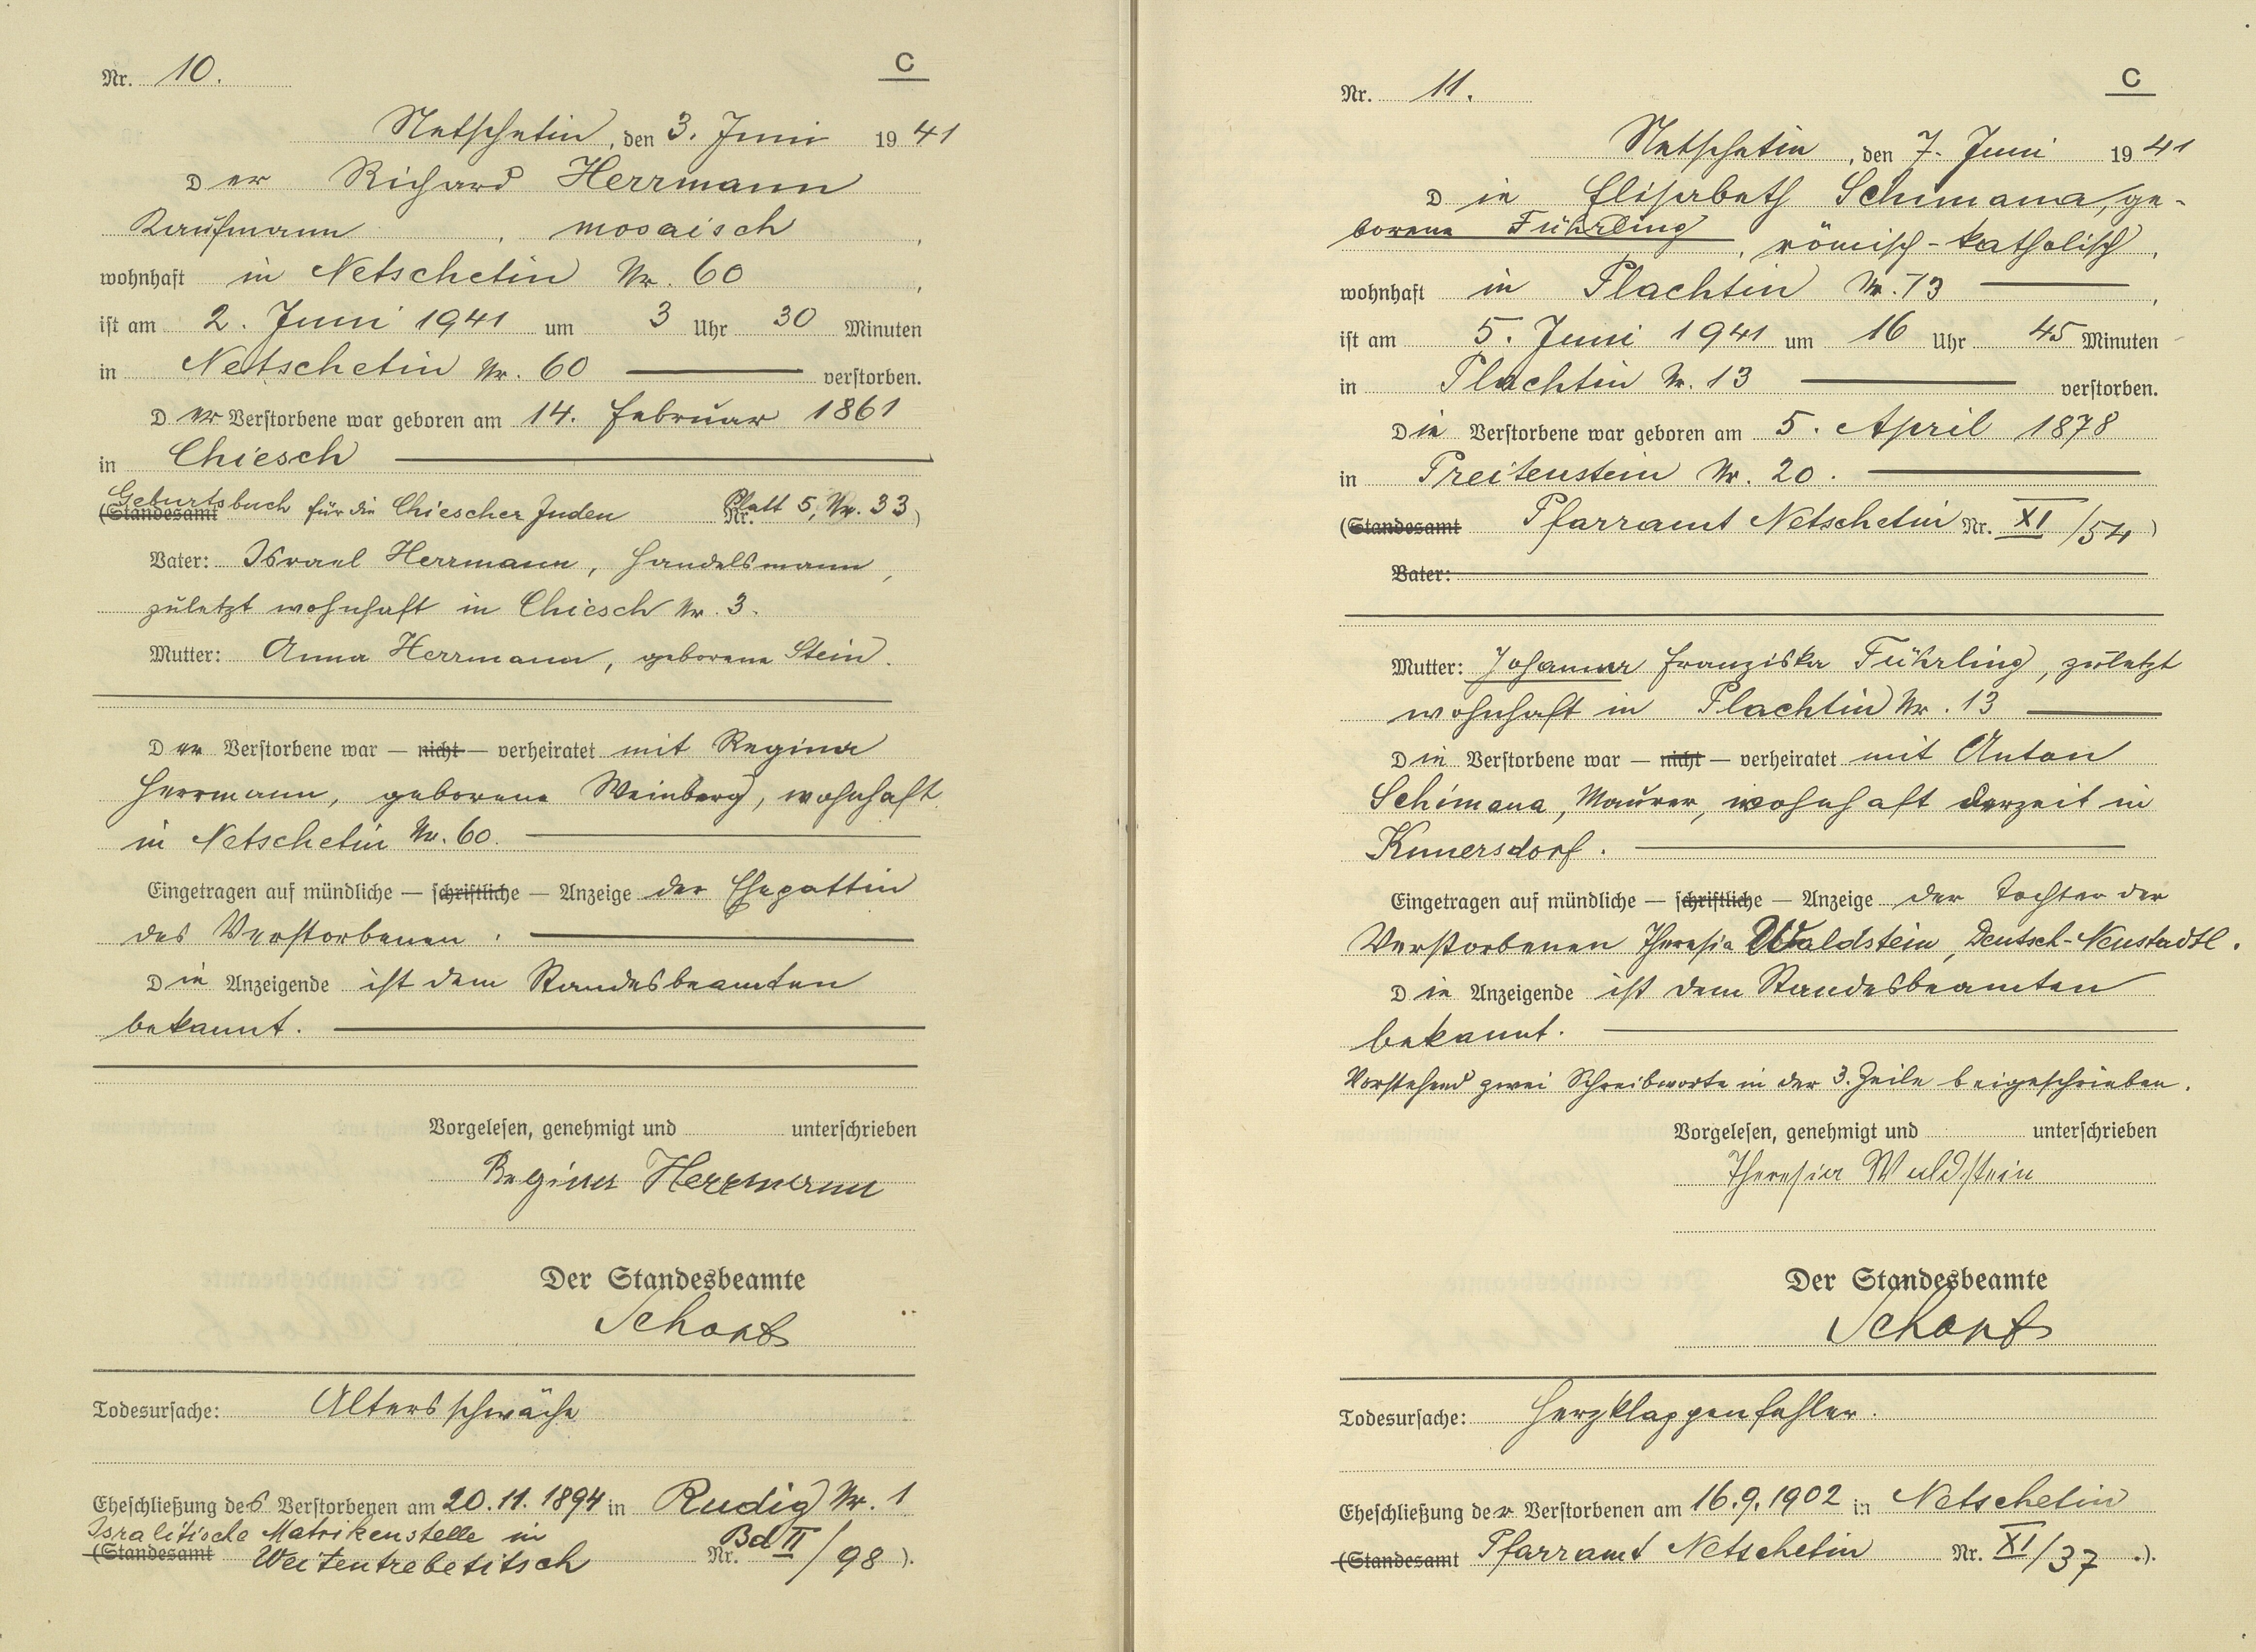 Nr. 10.
C
Netschetin, den 3. Juni 1941
Der Richard Herrmann
Kaufmann, mosaisch,
wohnhaft in Netschetin Nr. 60,
ist am 2. Juni 1941 um 3 Uhr 30 Minuten
in Netschetin Nr. 60 verstorben.
Der Verstorbene war geboren am 14. Februar 1861
in Chiesch
Geburtsbuch für die Chiescher Juden Blatt 5, Nr. 33)
(Standesamt Nr.
Vater: Israel Herrmann, Handelsmann,
zuletzt wohnhaft in Chiesch Nr. 3.
Mutter: Anna Herrmann, geborene Stein.
Der Verstorbene war — nicht — verheiratet mit Regina
Herrmann, geborene Weinberg, wohnhaft
in Netschetin Nr. 60.
Eingetragen auf mündliche — schriftliche — Anzeige der Ehegattin
des Verstorbenen.
Die Anzeigende ist dem Standesbeamten
bekannt.
Vorgelesen, genehmigt und unterschrieben
Regina Herrmann
Der Standesbeamte
Todesursache: Altersschwäche
Eheschließung des Verstorbenen am 20.11.1894 in Rudig Nr. 1
Isralitische Matrikenstelle in
(Standesamt Weitentrebetitsch Nr. Bd II/98).
Nr. 11.
C
Netschetin, den 7. Juni 1941
Die Elisabeth Schimana, ge-
borene Führling, römisch-katholisch,
wohnhaft in Plachtin Nr. 13,
ist am 5. Juni 1941 um 16 Uhr 45 Minuten
in Plachtin Nr. 13 verstorben.
Die Verstorbene war geboren am 5. April 1878
in Preitenstein Nr. 20.
(Standesamt Pfarramt Netschetin Nr. XI/54)
Vater:
Mutter: Johanna Franziska Führling, zuletzt
wohnhaft in Plachtin Nr. 13
Die Verstorbene war — nicht — verheiratet mit Anton
Schimana, Maurer, wohnhaft derzeit in
Kunersdorf.
Eingetragen auf mündliche — schriftliche — Anzeige der Tochter der
Verstorbenen Theresia Waldstein, Deutsch-Neustadtl.
Die Anzeigende ist dem Standesbeamten
bekannt.
Vorstehend zwei Schreibworte in der 3. Zeile beigeschrieben.
Vorgelesen, genehmigt und unterschrieben
Theresia Waldstein
Der Standesbeamte
Todesursache: Herzklappenfehler.
Eheschließung der Verstorbenen am 16.9.1902 in Netschetin
(Standesamt Pfarramt Netschetin Nr. XI/37.).